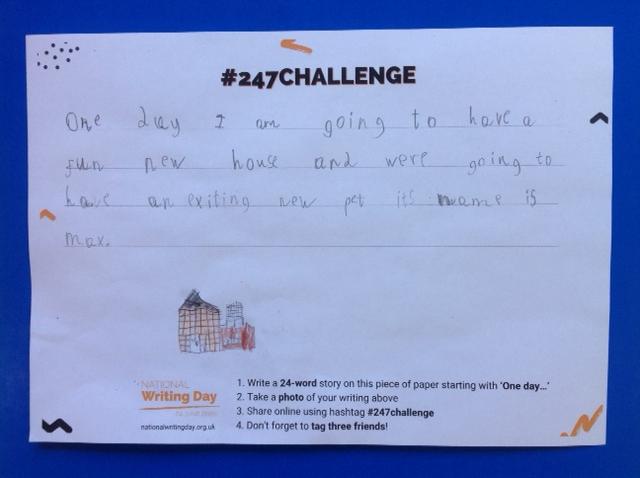 #247CHALLENGE
One day I am going to have a
fun new house and were going to
have an exiting new pet its name is
max.
NATIONAL
Writing Day
nationalwritingday.org.uk
1. Write a 24-word story on this piece of paper starting with 'One day...'
2. Take a photo of your writing above
3. Share online using hashtag #247challenge
4. Don't forget to tag three friends!